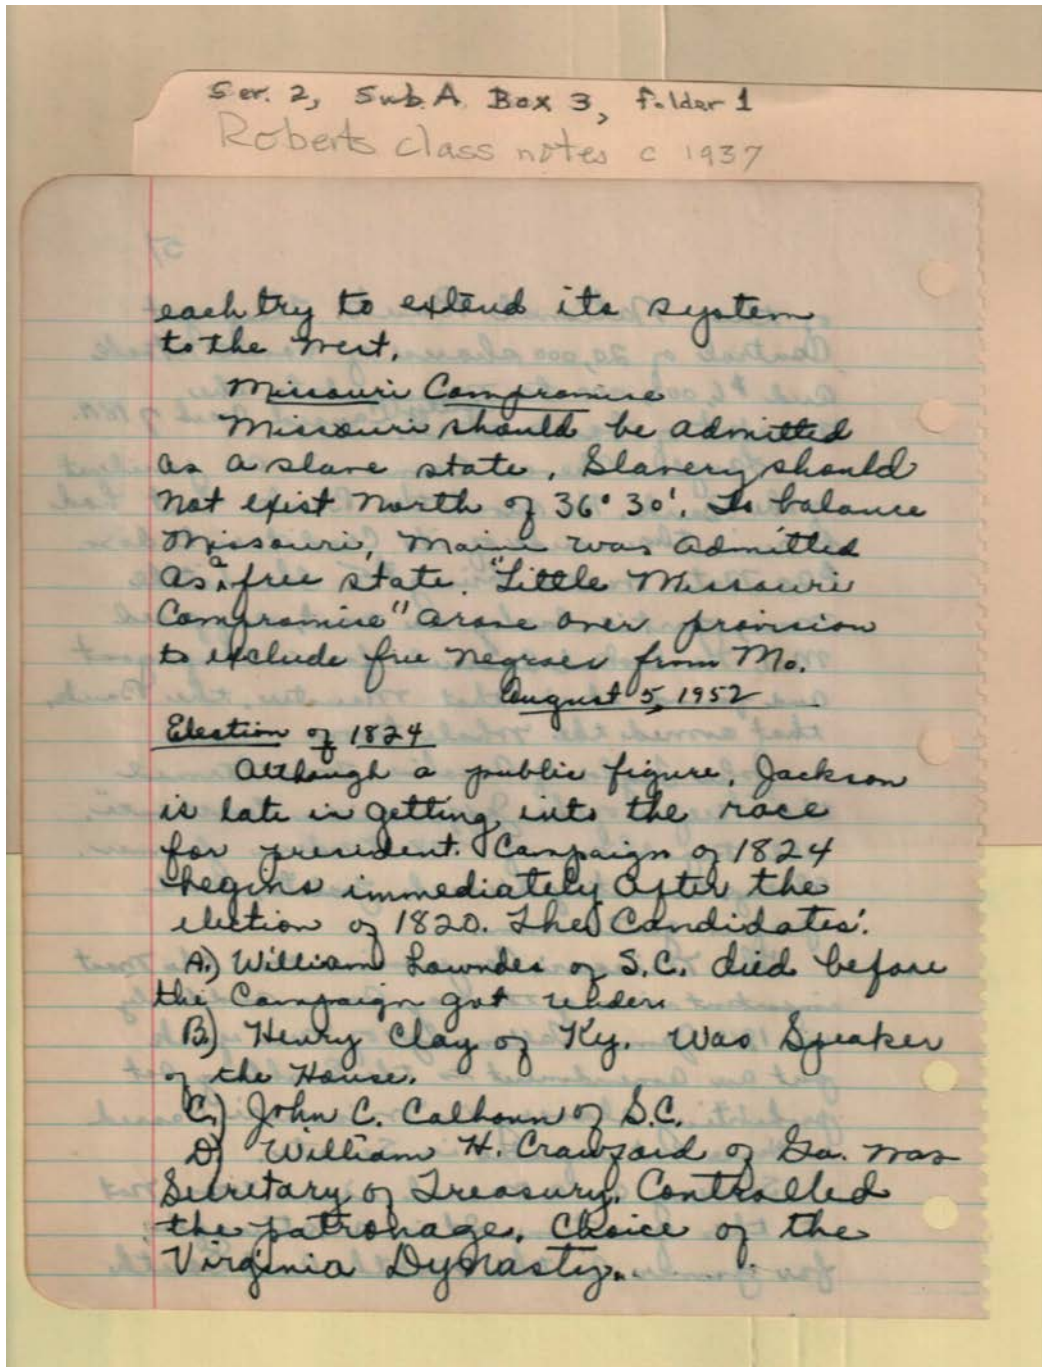 Ser. 2, Sub.A Box 3, folder 1
Roberts class notes c 1937
each try to extend its system
to the West.
Missouri Compromise
Missouri should be admitted
as a slave state. Slavery should
not exist North of 36° 30'. To balance
Missouri, Maine was admitted
as a free state. "Little Missouri
Compromise" arose over provision
to exclude free negroes from Mo.
August 5, 1952
Election of 1824
Although a public figure, Jackson
is late in getting into the race
for president. Campaign of 1824
begins immediately after the
election of 1820. The Candidates:
A.) William Lowndes of S.C. died before
the Campaign got under.
B.) Henry Clay of Ky. Was Speaker
of the House.
C.) John C. Calhoun of S.C.
D) William H. Crawford of Ga. was
Secretary of Treasury. Controlled
the patronage. Choice of the
Virginia Dynasty.